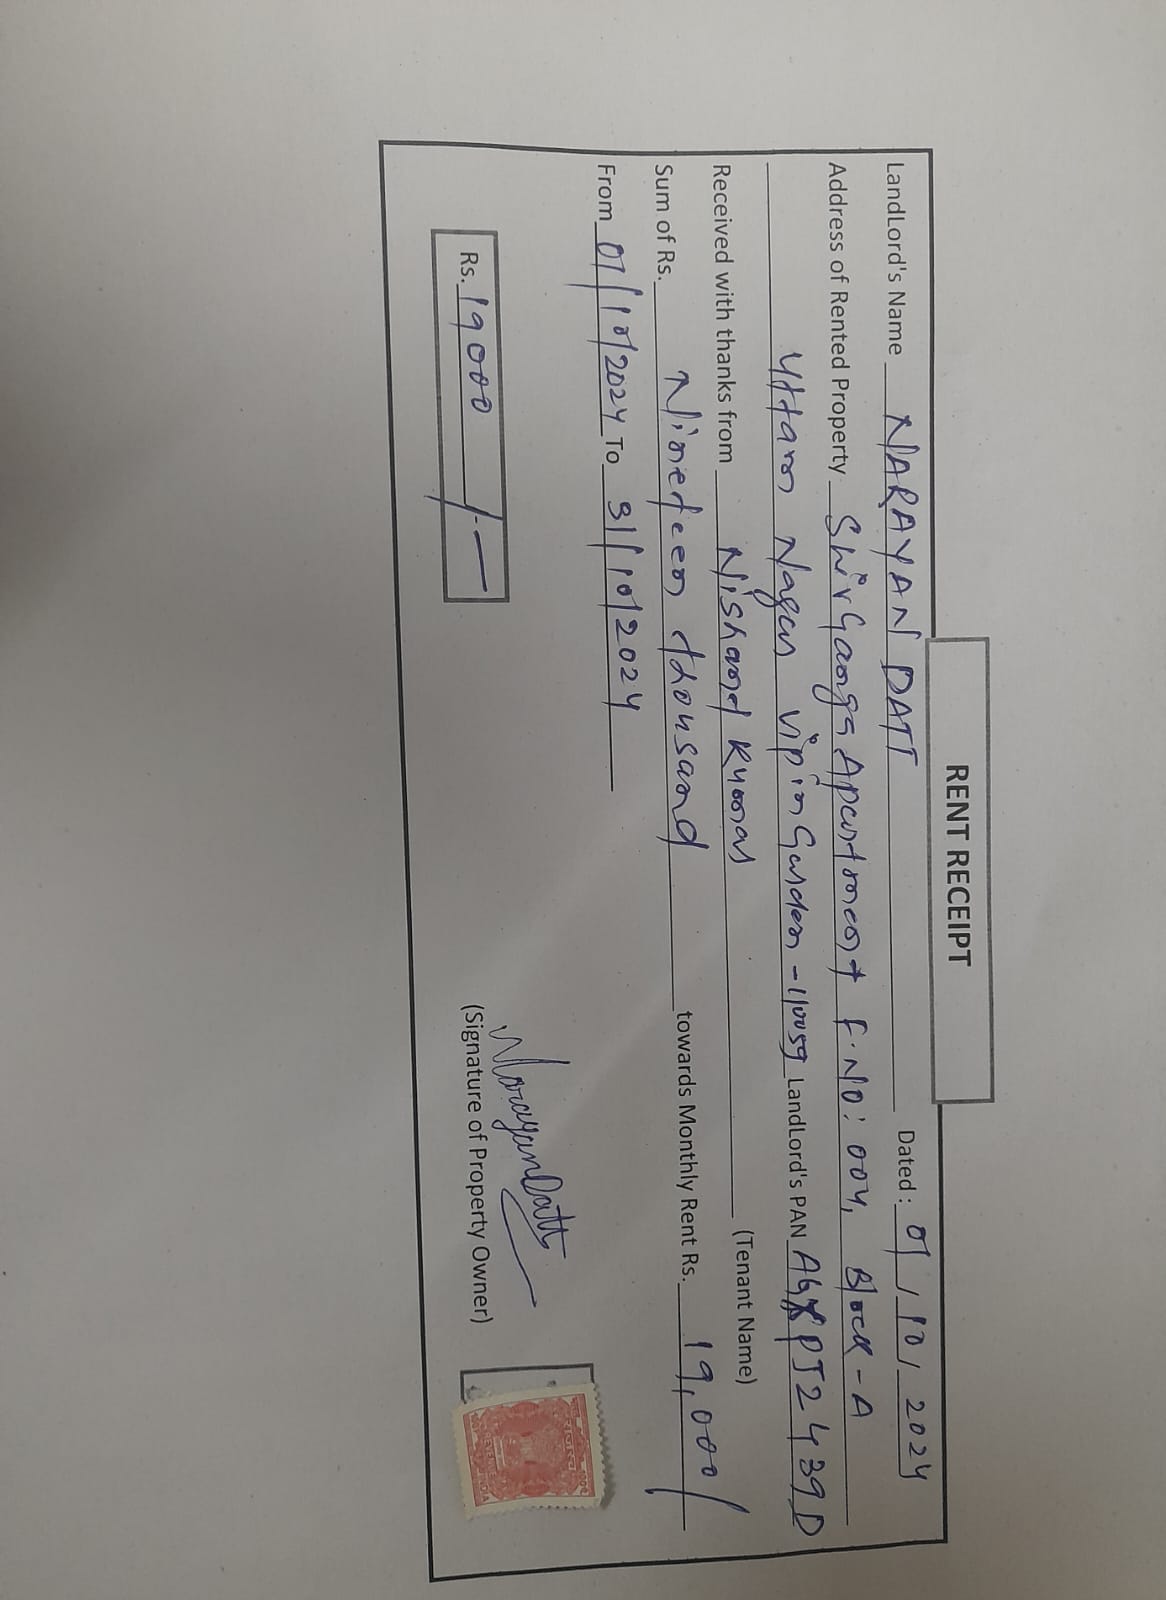 RENT RECEIPT
LandLord's Name NARAYAN DATT Dated: 01/10/2024
Address of Rented Property Shiv Ganga Apartment F.NO: 004, Block-A
Uttam Nagar Vipin Garden -110059 LandLord's PAN PT2439D
Received with thanks from Nishand Kumar (Tenant Name)
Sum of Rs. Nineteen thousand towards Monthly Rent Rs. 19,000/
From 01/10/2024 To 31/10/2024
Rs. 19000/-
NarayanDatt
(Signature of Property Owner)